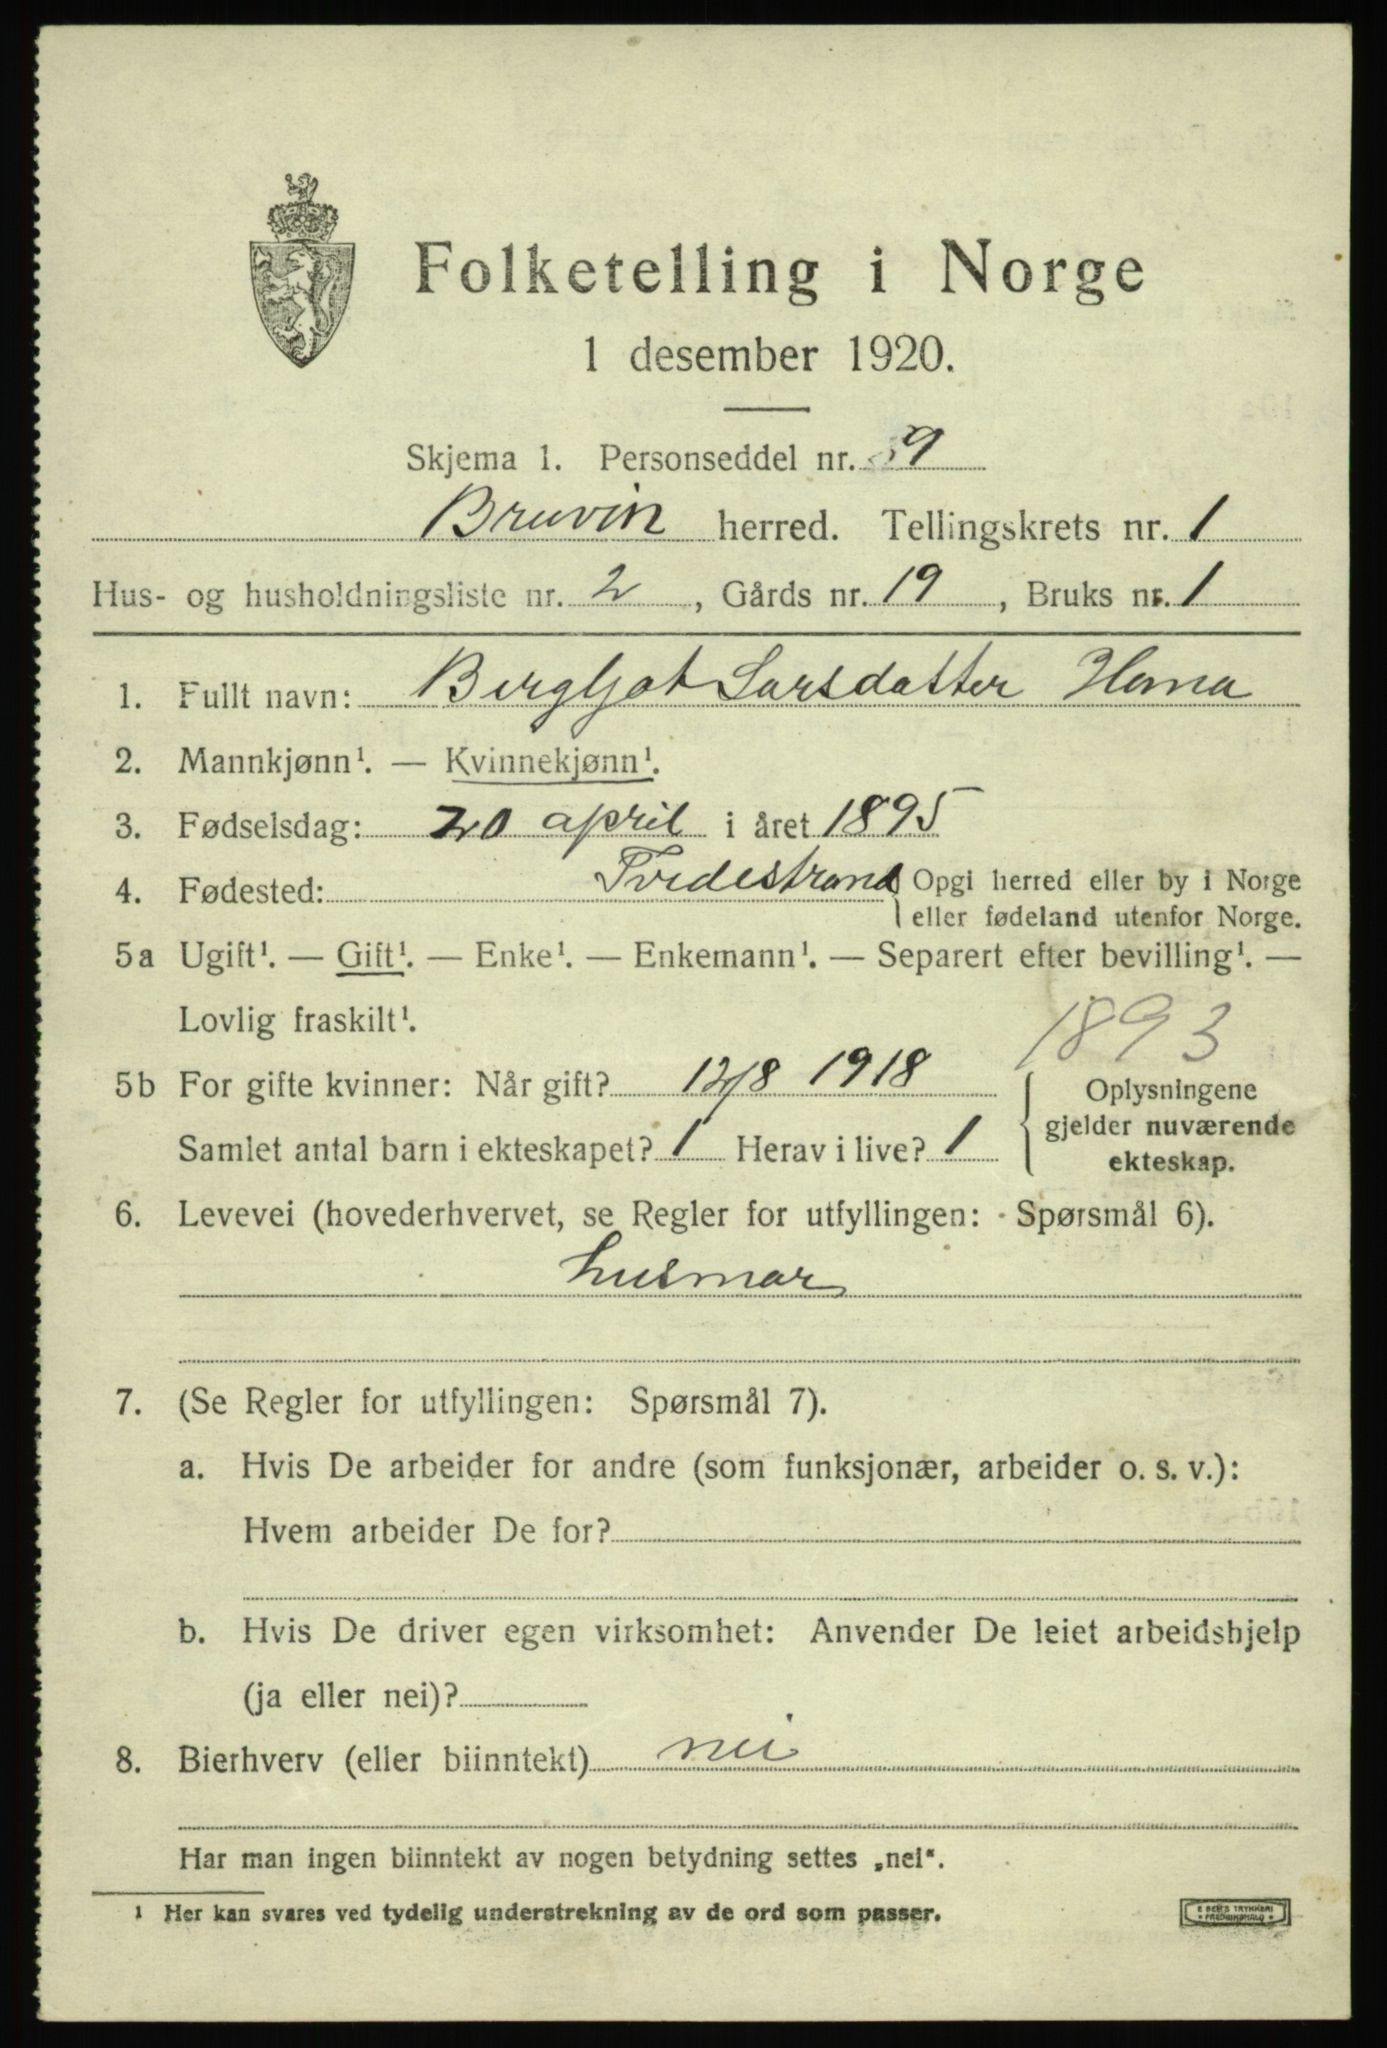 Folketelling i Norge
1 desember 1920.
Skjema 1. Personseddel nr. 9
Bruvin herred. Tellingskrets nr. 1
Hus- og husholdningsliste nr. 2, Gårds nr. 19, Bruks nr. 1
1. Fullt navn: Bergljot Larsdatter Hana
2. Mannkjønn¹. — Kvinnekjønn¹.
3. Fødselsdag: 20 april i året 1895
4. Fødested: Tvedestrand { Opgi herred eller by i Norge
eller fødeland utenfor Norge.
5a Ugift¹. — Gift¹. — Enke¹. — Enkemann¹. — Separert efter bevilling¹. —
Lovlig fraskilt¹.
1893
5b For gifte kvinner: Når gift? 12/8 1918
Samlet antal barn i ekteskapet? 1 Herav i live? 1
{ Oplysningene
gjelder nuværende
ekteskap.
6. Levevei (hovederhvervet, se Regler for utfyllingen: Spørsmål 6).
husmor
7. (Se Regler for utfyllingen: Spørsmål 7).
a. Hvis De arbeider for andre (som funksjonær, arbeider o. s. v.):
Hvem arbeider De for?
b. Hvis De driver egen virksomhet: Anvender De leiet arbeidshjelp
(ja eller nei)?
8. Bierhverv (eller biinntekt) nei
Har man ingen biinntekt av nogen betydning settes „nei“.
¹ Her kan svares ved tydelig understrekning av de ord som passer.